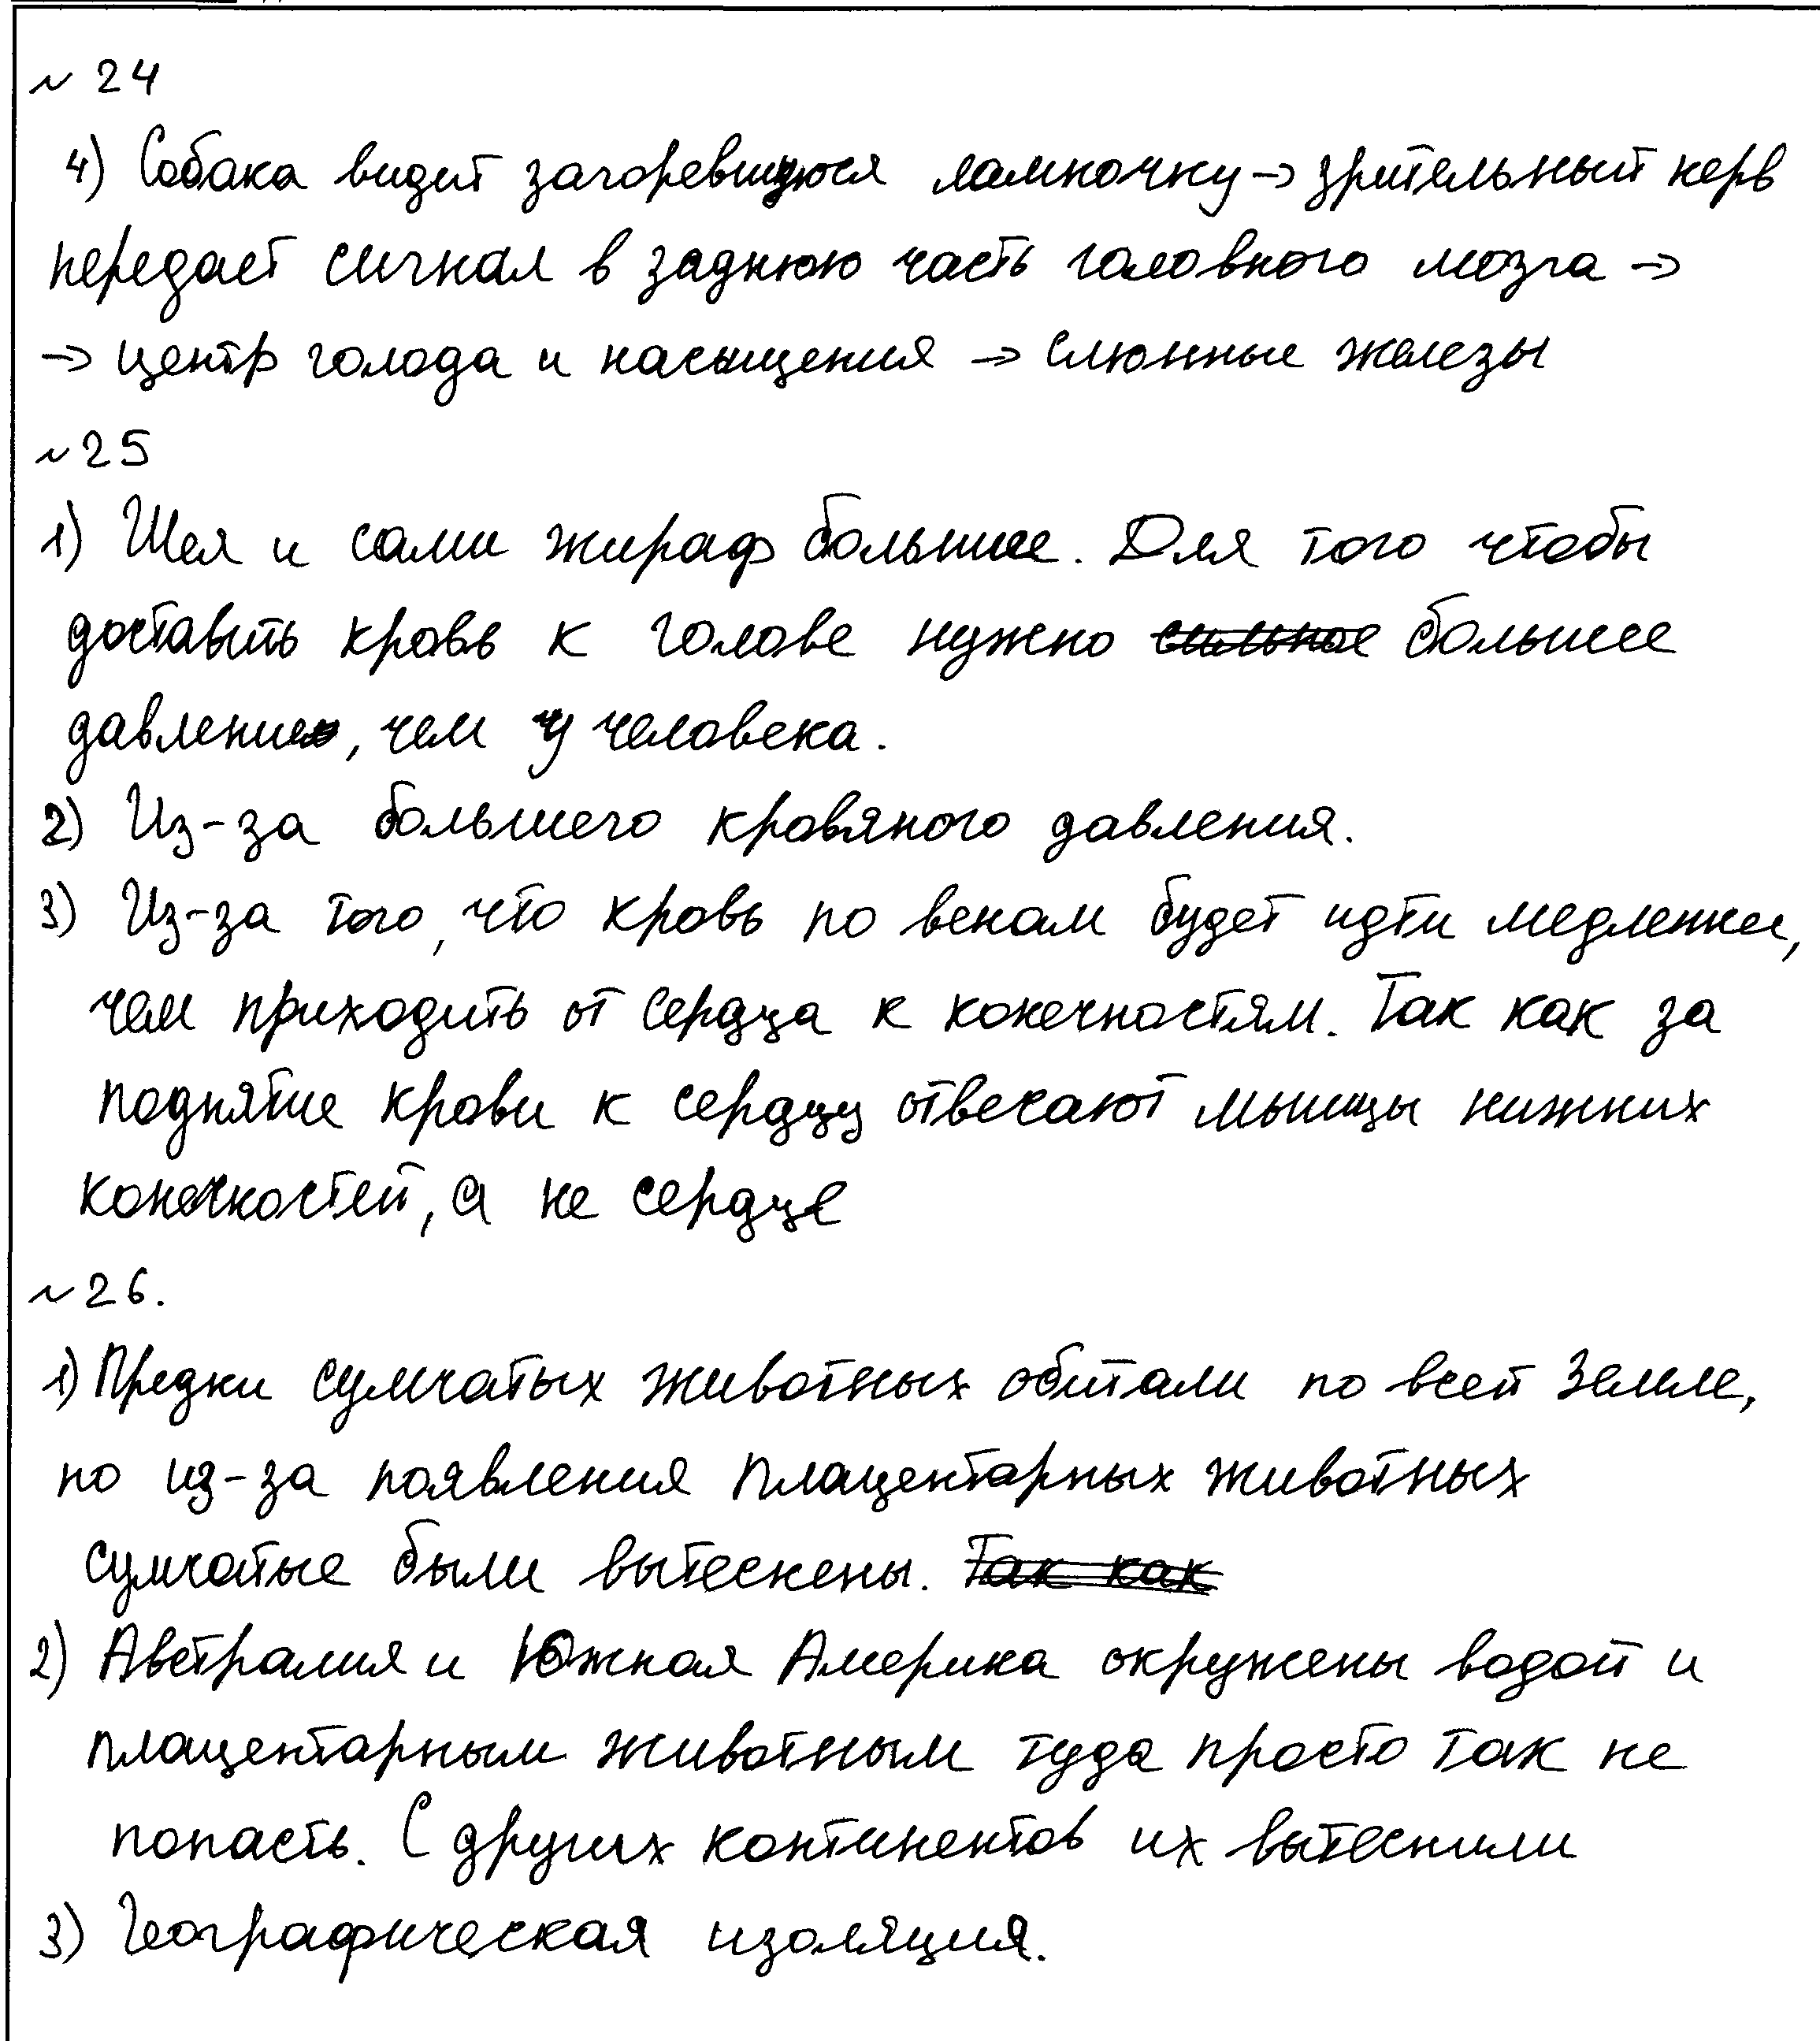 ~ 24
4) Собака видит загоревшуюся лампочку → зрительный нерв
передает сигнал в заднюю часть головного мозга →
→ центр голода и насыщения → слюнные железы
~ 25
1) Шея и сами жираф большие. Для того чтобы
доставить кровь к голове нужно сильное большее
давление, чем у человека.
2) Из-за большего кровяного давления.
3) Из-за того, что кровь по венам будет идти медленнее,
чем приходить от сердца к конечностям. Так как за
поднятие крови к сердцу отвечают мышцы нижних
конечностей, а не сердце
~ 26.
1) Предки сумчатых животных обитали по всей Земле,
но из-за появления плацентарных животных
сумчатые были вытеснены. Так как
2) Австралия и Южная Америка окружены водой и
плацентарным животным туда просто так не
попасть. С других континентов их вытеснили
3) Географическая изоляция.